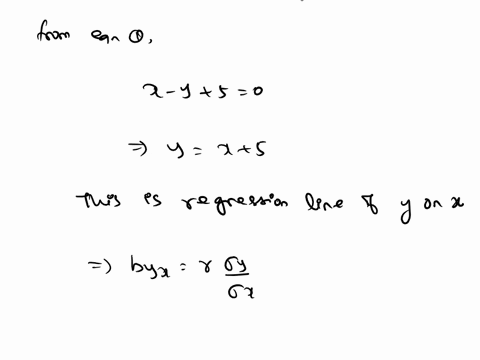 from eqn ①,
x - y + 5 = 0
⇒ y = x + 5
This is regression line of y on x
⇒ byx = r σy/σx